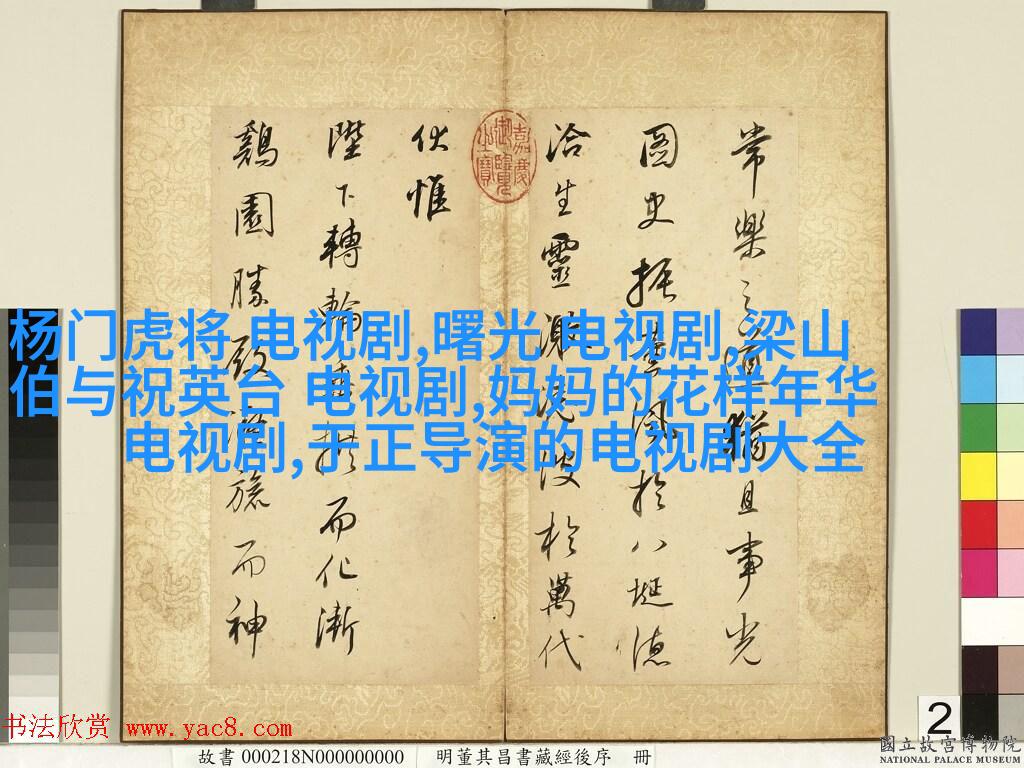 常樂之道猶且事光
圖史振風於八埏德
洽生靈波於萬代
伏惟
陛下轉輪垂拱而化漸
鷄園勝殿凝旒而神
嘉慶御覽之寶
杨门虎将 电视剧,曙光 电视剧,梁山
伯与祝英台 电视剧,妈妈的花样年华
电视剧,于正导演的电视剧大全
2
书法欣赏 www.yac8.com
故書 000218N000000000 明董其昌書藏經後序 冊
國立故宮博物院
NATIONAL PALACE MUSEUM